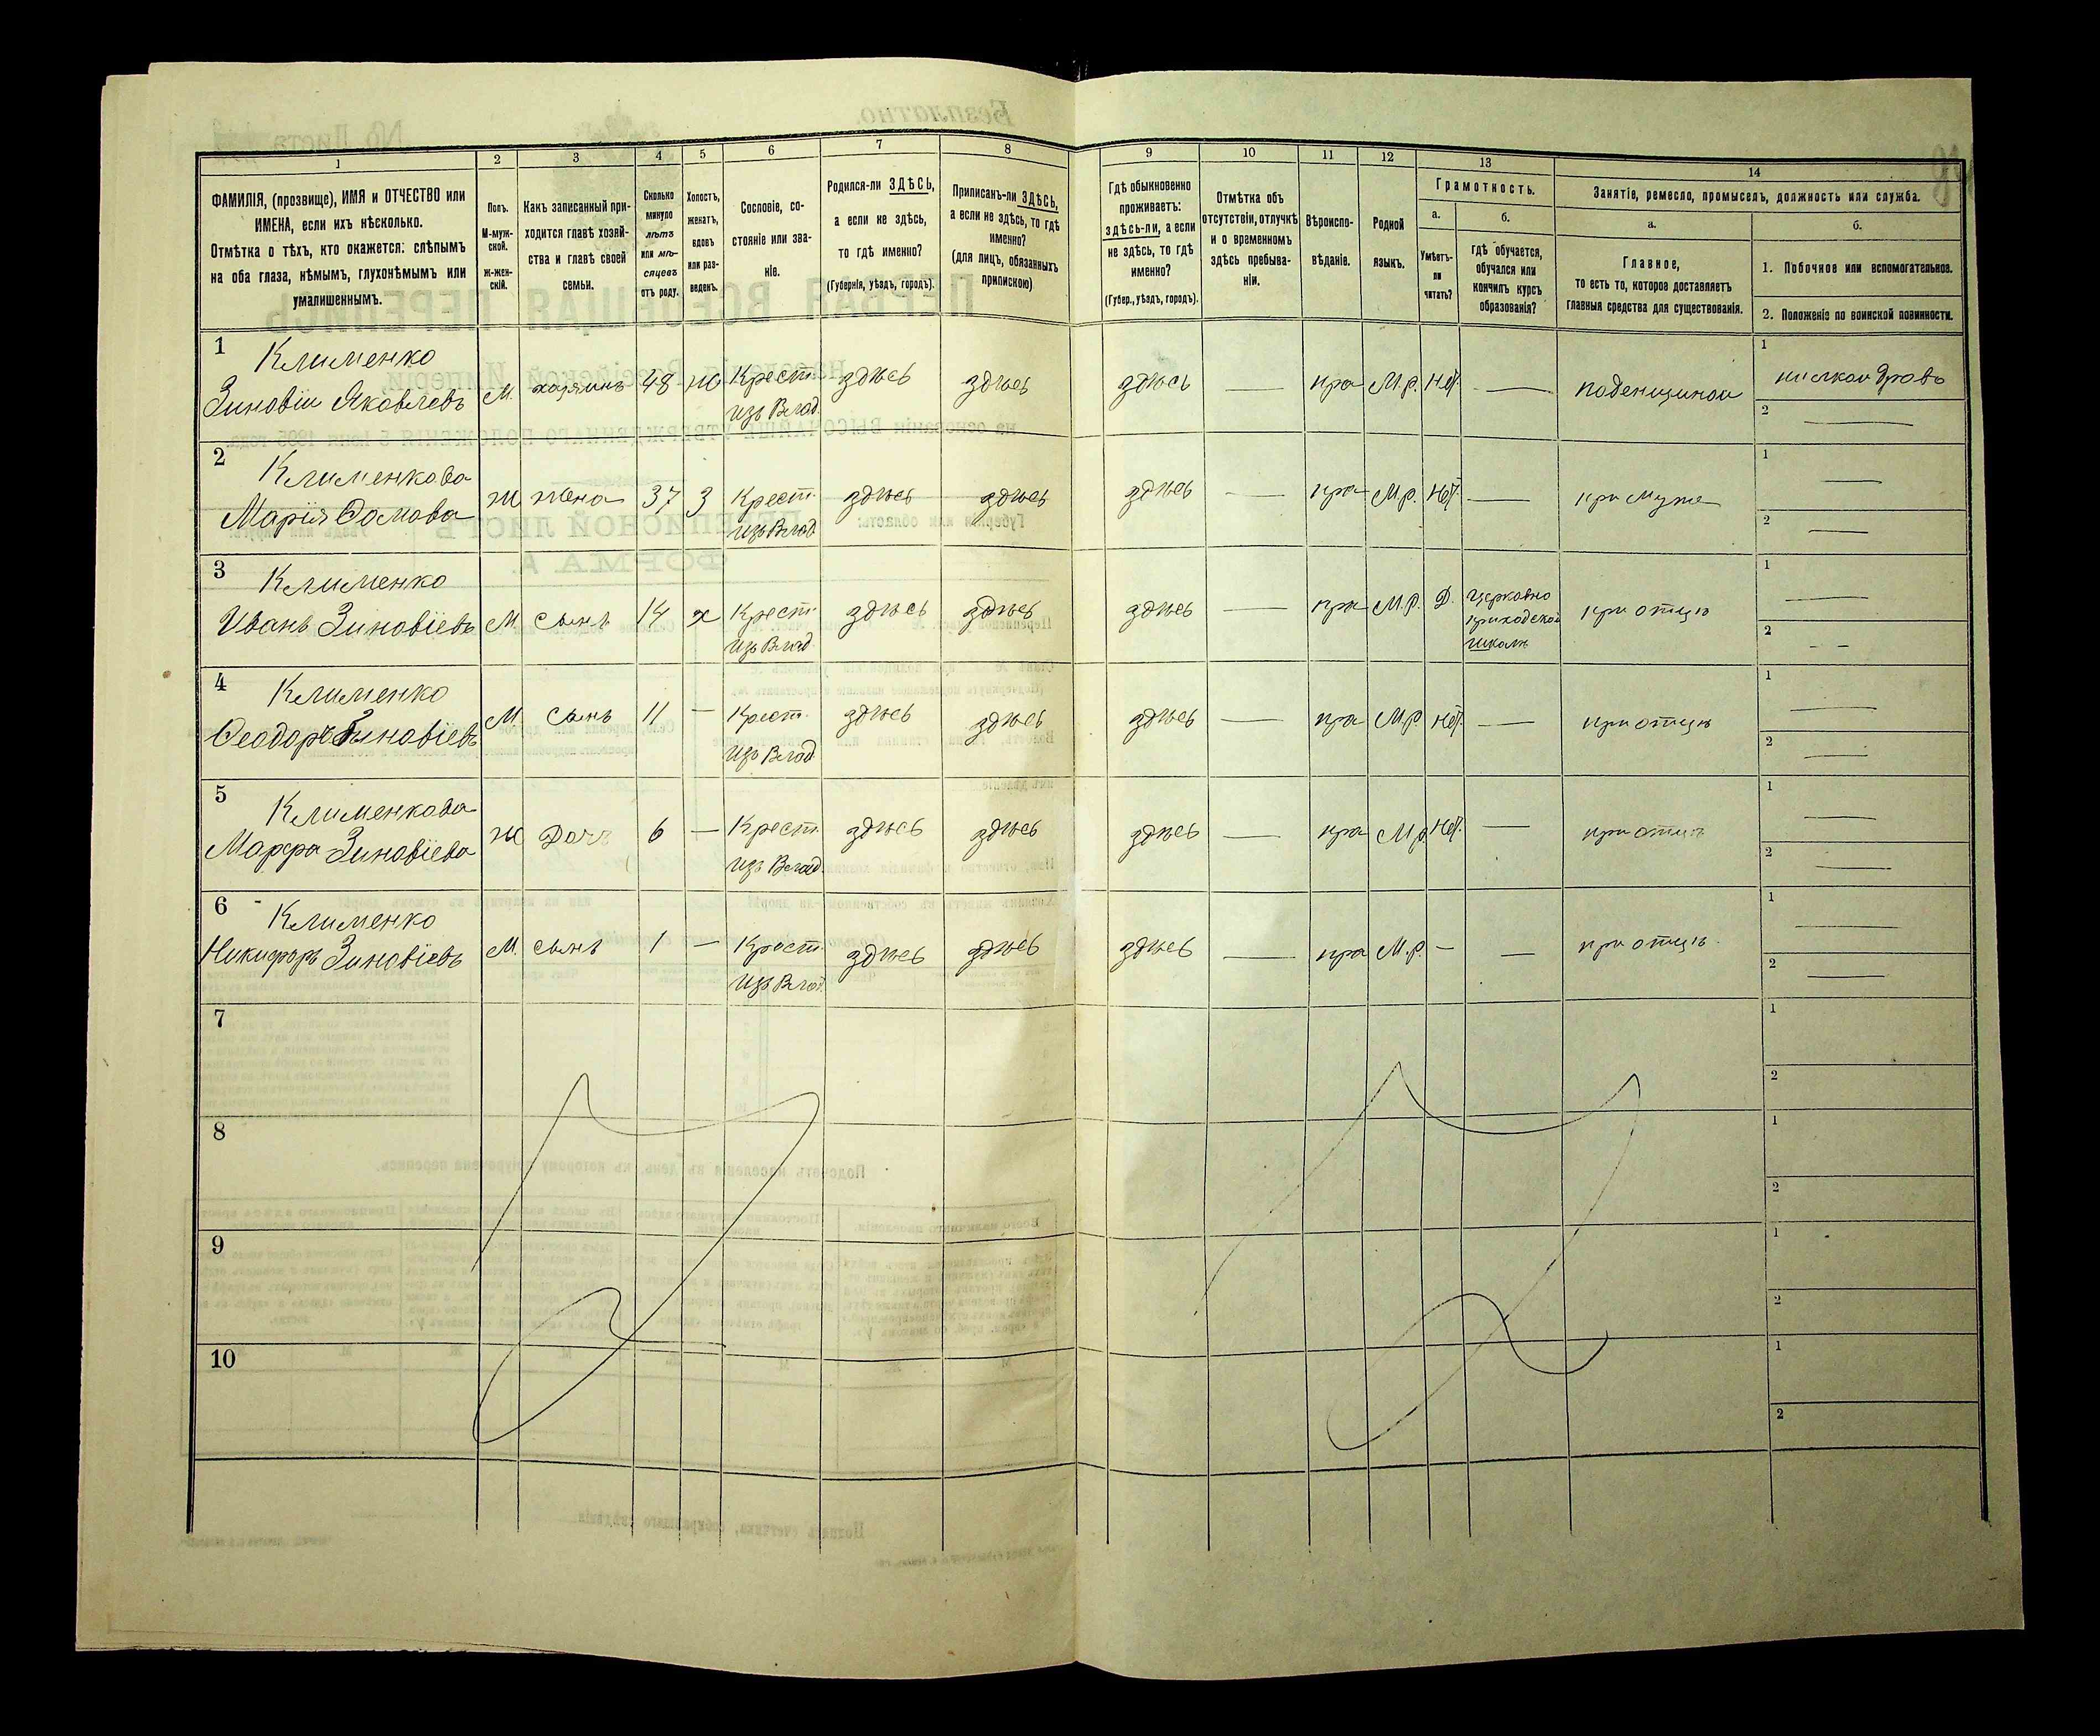 1 2 3 4 5 6 7 8 9 10 11 12 13 14
ФАМИЛІЯ, (прозвище), ИМЯ и ОТЧЕСТВО или
ИМЕНА, если ихъ нѣсколько.
Отмѣтка о тѣхъ, кто окажется: слѣпымъ
на оба глаза, нѣмымъ, глухонѣмымъ или
умалишеннымъ.
Полъ.
М-муж-
ской.
Ж-жен-
скій.
Какъ записанный при-
ходится главѣ хозяй-
ства и главѣ своей
семьи.
Сколько
минуло
лѣтъ
или мѣ-
сяцевъ
отъ роду.
Холостъ,
женатъ,
вдовъ
или раз-
веденъ.
Сословіе, со-
стояніе или зва-
ніе.
Родился-ли ЗДѢСЬ,
а если не здѣсь,
то гдѣ именно?
(Губернія, уѣздъ, городъ).
Приписанъ-ли ЗДѢСЬ,
а если не здѣсь, то гдѣ
именно?
(для лицъ, обязанныхъ
припискою)
Гдѣ обыкновенно
проживаетъ:
здѣсь-ли, а если
не здѣсь, то гдѣ
именно?
(Губер., уѣздъ, городъ).
Отмѣтка объ
отсутствіи, отлучкѣ
и о временномъ
здѣсь пребыва-
ніи.
Вѣроиспо-
вѣданіе.
Родной
языкъ.
Грамотность.
а.
Умѣетъ-
ли
читать?
б.
гдѣ обучается,
обучался или
кончилъ курсъ
образованія?
Занятіе, ремесло, промыселъ, должность или служба.
а.
Главное,
то есть то, которое доставляетъ
главныя средства для существованія.
б.
1. Побочное или вспомогательное.
2. Положеніе по воинской повинности.
1 Клименко
Зиновіи Яковлевъ М. хозяинъ 48 ж Крест. здѣсь здѣсь здѣсь — пра М.р. Нѣт. — поденщиной 1 пилкои дровъ
изъ Влад. 2 —
2 Клименкова
Марія Ѳомова Ж жена 37 з Крест. здѣсь здѣсь здѣсь — пра М.р. Нѣт. — при мужѣ 1 —
изъ Влад. 2 —
3 Клименко
Иванъ Зиновіевъ М сынъ 14 х Крест. здѣсь здѣсь здѣсь — пра М.р. Д. Церковно при отцѣ 1 —
изъ Влад. приходской 2 - -
школѣ
4 Клименко
Ѳеодоръ Зиновіевъ М. сынъ 11 — Крест. здѣсь здѣсь здѣсь — пра М.р. Нѣт. — при отцѣ 1 —
изъ Влад. 2 —
5 Клименкова
Марфа Зиновіева Ж Дочь 6 — Крест. здѣсь здѣсь здѣсь — пра М.р. Нѣт. — при отцѣ 1 —
изъ Влад. 2 —
6 Клименко
Никифоръ Зиновіевъ М. сынъ 1 — Крест. здѣсь здѣсь здѣсь — пра М.р. — — при отцѣ 1 —
изъ Влад. 2 —
7 1
2
8 1
2
9 1
2
10 1
2